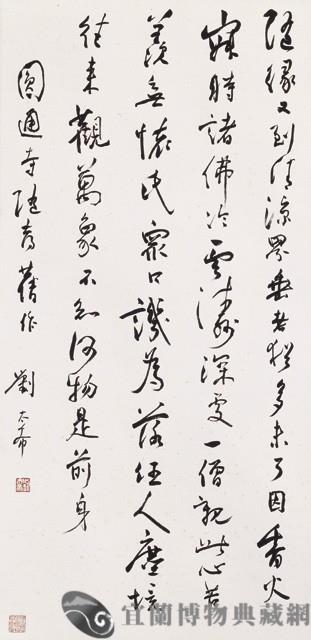 隨緣又到清涼界垂老猶多未了因香火
寂時諸佛冷雲深處一僧親此心苦
羨無懷氏眾口譏為落伍人塵境
往來觀萬象不知何物是前身
圓通寺隨喜舊作 劉太希
宜蘭博物典藏網